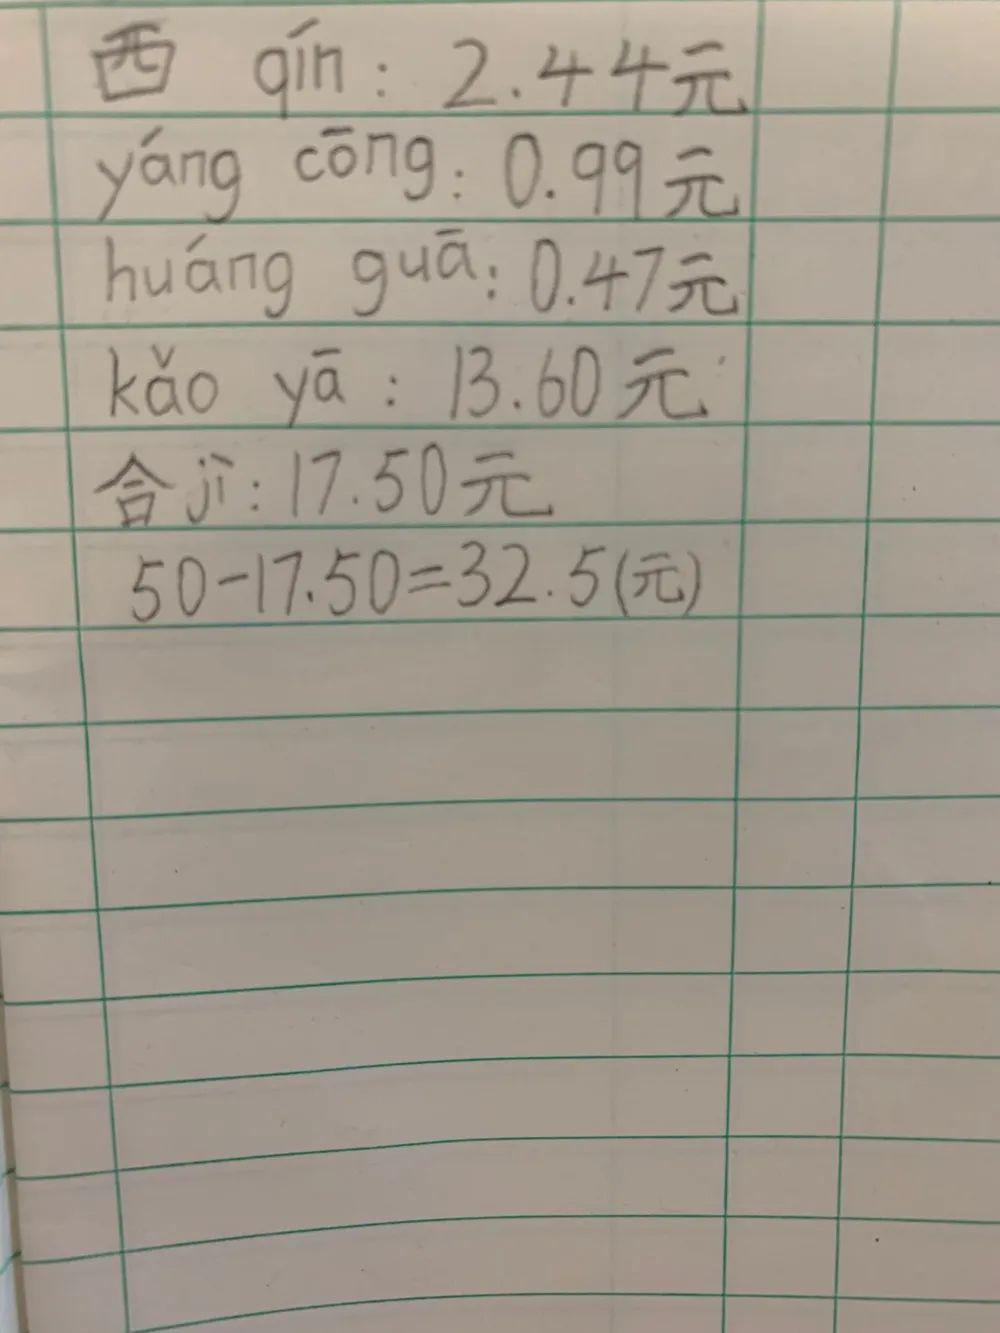 西 qín: 2.44元
yáng cōng: 0.99元
huáng guā: 0.47元
kǎo yā: 13.60元
合jì: 17.50元
50-17.50=32.5(元)